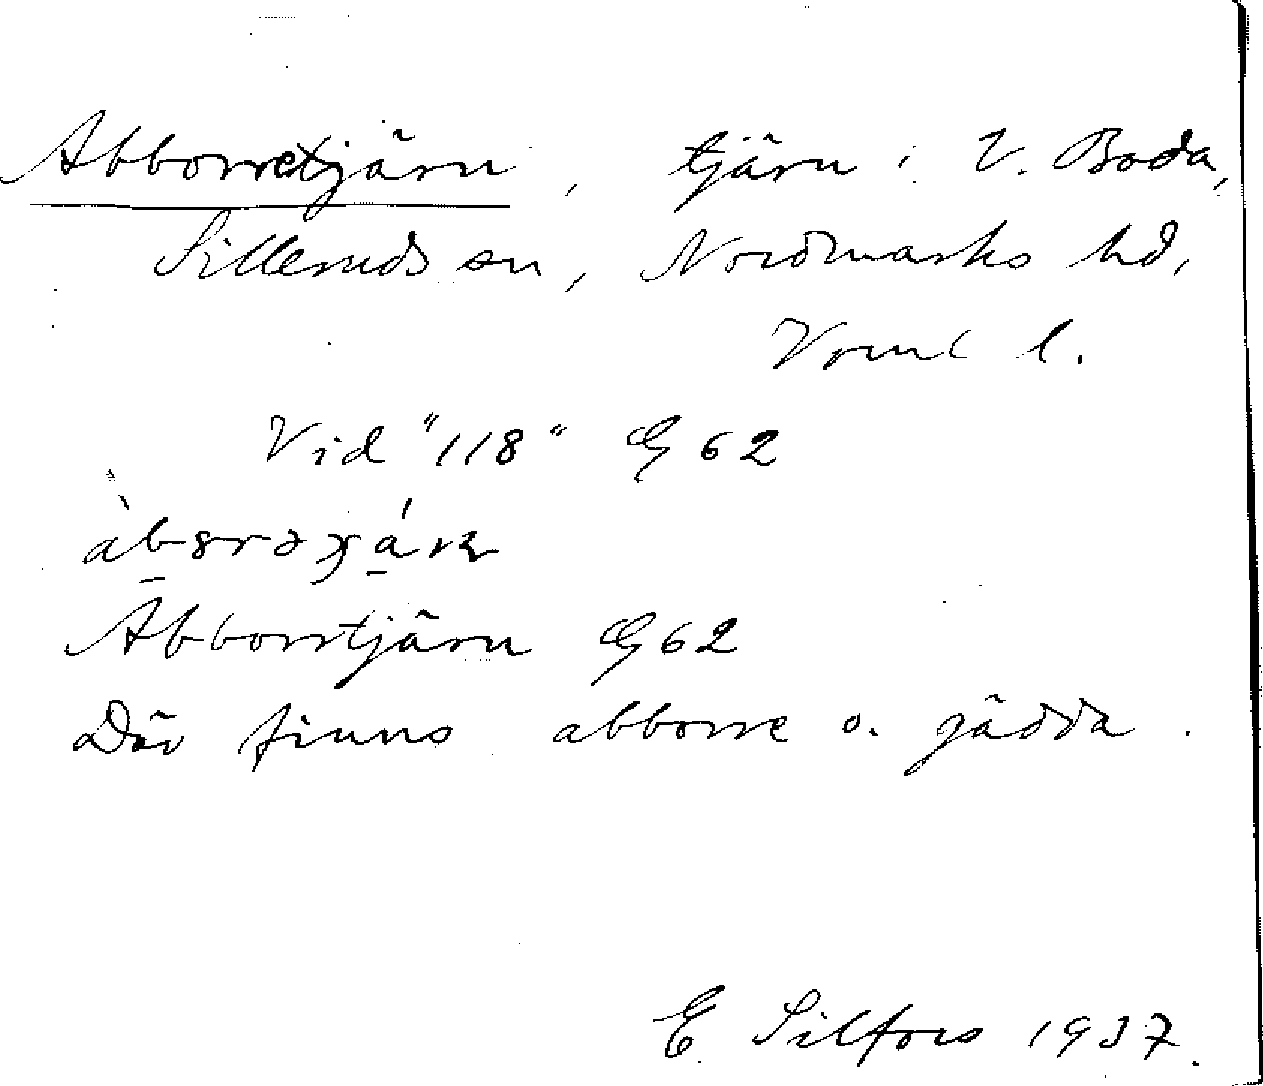 Abborretjärn, tjärn i V. Boda,
Silleruds sn, Nordmarks hd,
Vrml l.
Vid "118" G 62
Abborrtjärn G 62
Där finns abborre o. gädda.
E. Silfors 1937.